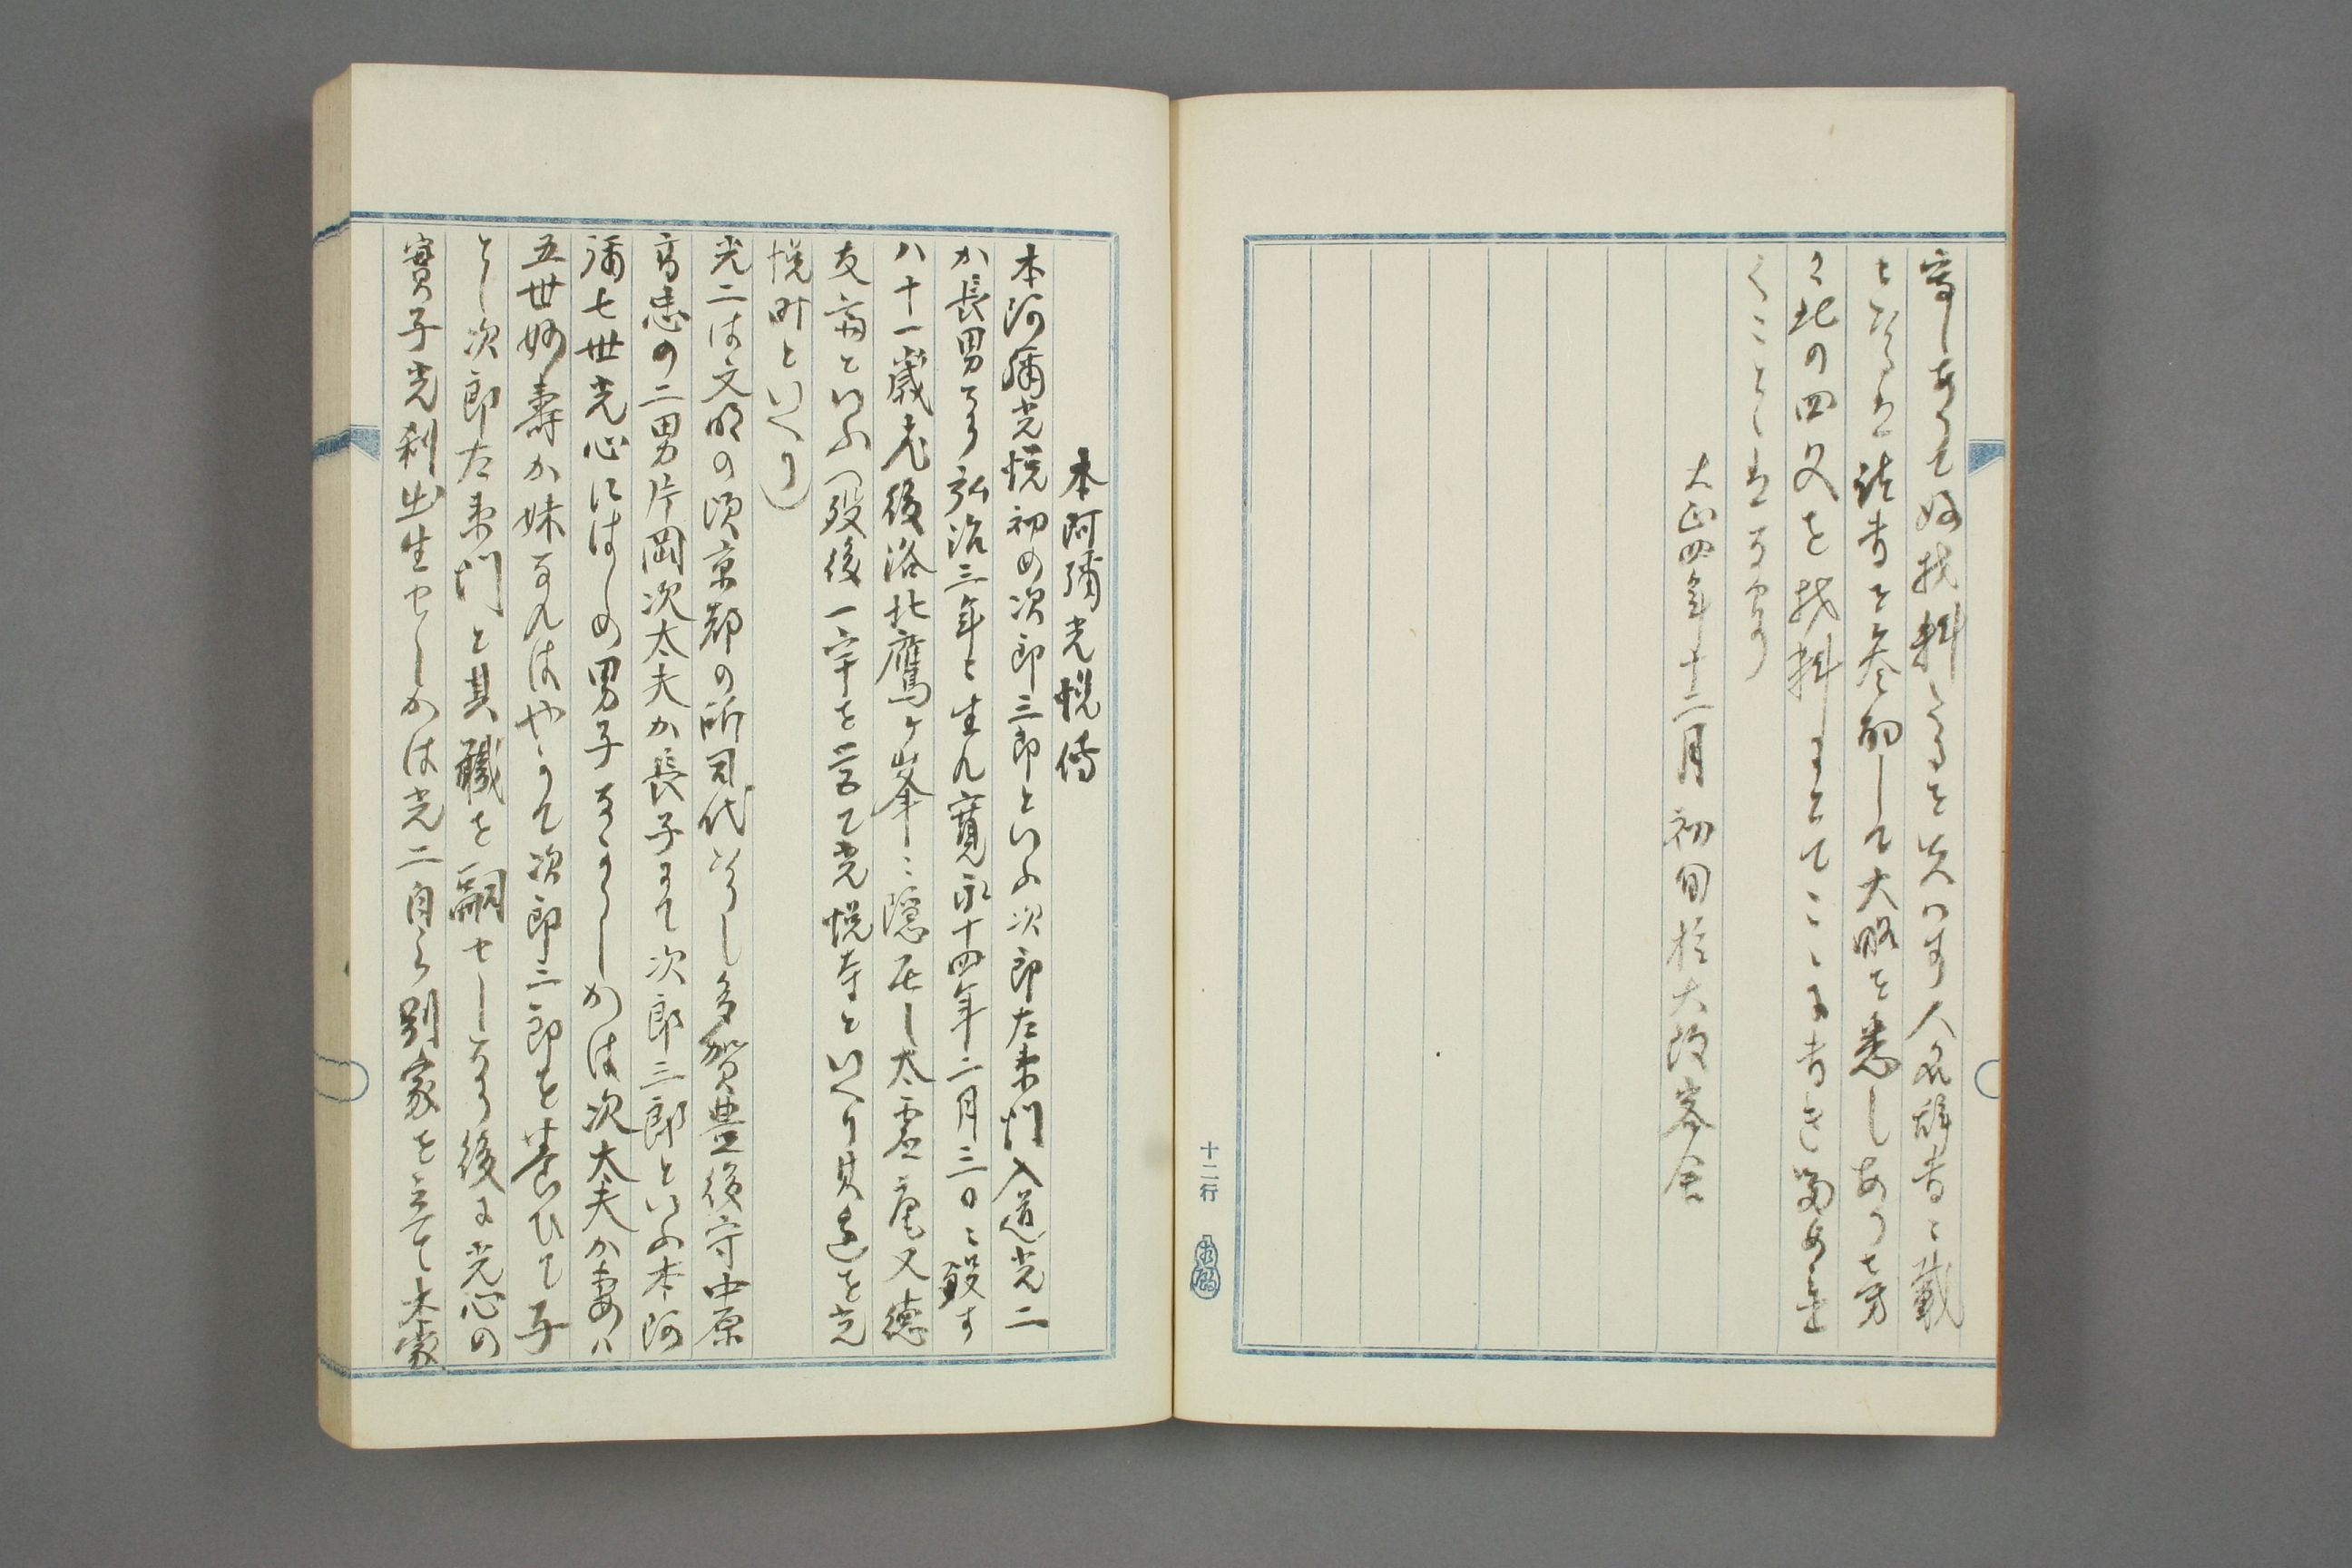 寄しありて好材料たるを失はす人名辞書に載
たるは諸書を参酌して大略を悉しあり
此の四文を材料にとてここに書き留め
くことしはなせり
大正四年十二月初旬於大阪客舎
十二行
本阿彌光悦傳
本阿彌光悦初め次郎三郎といふ次郎左衛門入道光二
か長男なり弘治三年に生れ寛永十四年二月三日に歿す
八十一歳老後洛北鷹ヶ峯に隠居し太虚庵又徳
友斎といふ(殁後一宇を営て光悦寺といへり其邊を光
悦町といへり)
光二は文明の頃京都の所司代たりし多賀豊後守中原
高忠の二男片岡次太夫か長子にて次郎三郎といふ本阿
彌七世光心にはしめ男子なかりしかは次太夫か妻ハ
五世妙壽か妹なれはやかて次郎三郎を養ひて子
とし次郎左衛門と其職を嗣せしなり後に光心の
實子光利出生せしかは光二自ら別家を立て本家